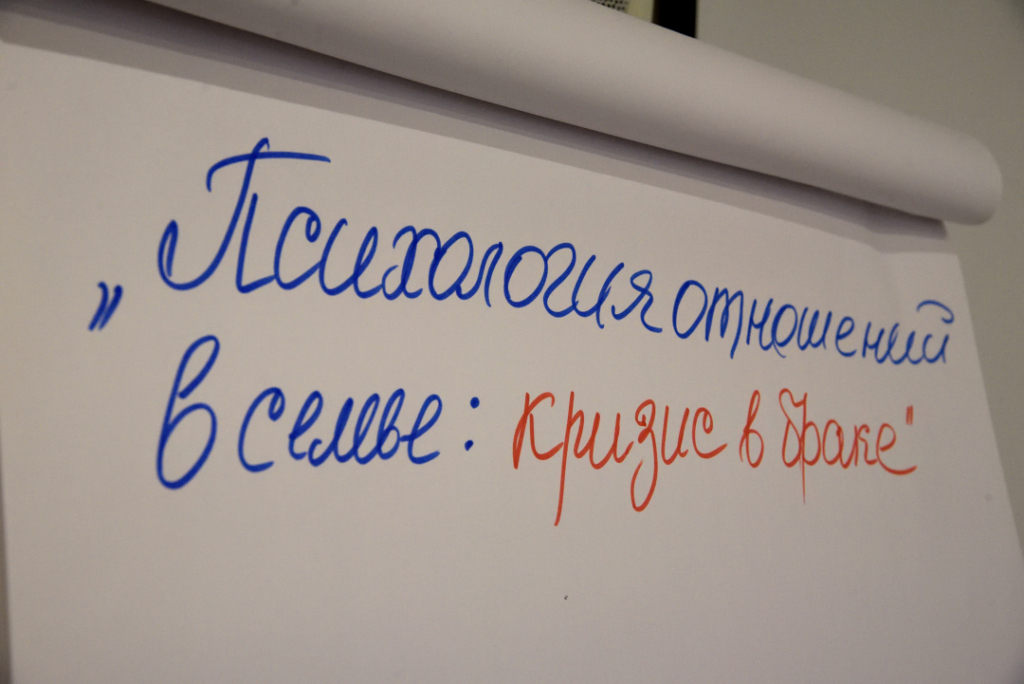 „Психология отношений
в семье: кризис в браке"